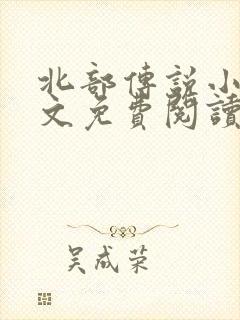 北部傳說小
文免費閱讀
吴成荣